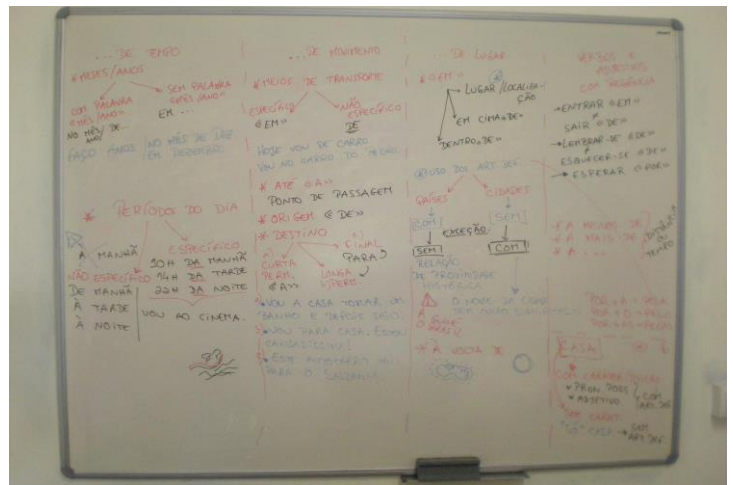 ... DE TEMPO
* MESES/ANOS
COM PALAVRA
«MÊS/ANO»
NO MÊS/ DE...
ANO/
SEM PALAVRA
«MÊS/ANO»
EM...
FAÇO ANOS
NO MÊS DE DEZ
EM DEZEMBRO.
* PERÍODOS DO DIA
A MANHÃ
NÃO ESPECÍFICO
DE MANHÃ
À TARDE
À NOITE
ESPECÍFICO
10H DA MANHÃ
14H DA TARDE
22H DA NOITE
VOU AO CINEMA.
... DE MOVIMENTO
* MEIOS DE TRANSPORTE
ESPECÍFICO
«EM»
NÃO
ESPECÍFICO
DE
HOJE VOU DE CARRO.
VOU NO CARRO DO PEDRO.
* ATÉ «A»
PONTO DE PASSAGEM
* ORIGEM «DE»
* DESTINO
CURTA
PERM.
«A»
LONGA
PERM.
FINAL
PARA
VOU A CASA TOMAR UM
BANHO E DEPOIS SAIO.
VOU PARA CASA. ESTOU
CANSADÍSSIMA!
ESTE AUTOCARRO VAI
PARA O
... DE LUGAR
* «EM»
LUGAR/LOCALIZA-
ÇÃO
EM CIMA «DE»
DENTRO «DE»
USO DOS ART. DEF.
PAÍSES
COM
SEM
CIDADES
SEM
COM
EXCEÇÃO
RELAÇÃO
DE PROXIMIDADE
HISTÓRICA
O NOME DA CIDADE
TEM
* À VOLTA
VERBOS E
ADJETIVOS
COM REGÊNCIA
→ ENTRAR «EM»
≠
SAIR «DE»
→ LEMBRAR-SE «DE»
≠
ESQUECER-SE «DE»
→ ESPERAR «POR»
* A MENOS DE
* A MAIS DE
* A ...
DISTÂNCIA
OU
TEMPO
POR + A = PELA
POR + O = PELO
POR + AS = PELAS
CASA
COM CARACTERIZAÇÃO
PRON. POSS
ADJETIVO
COM
ART. DEF
SEM CARACT.
"SÓ" CASA → SEM
ART. DEF